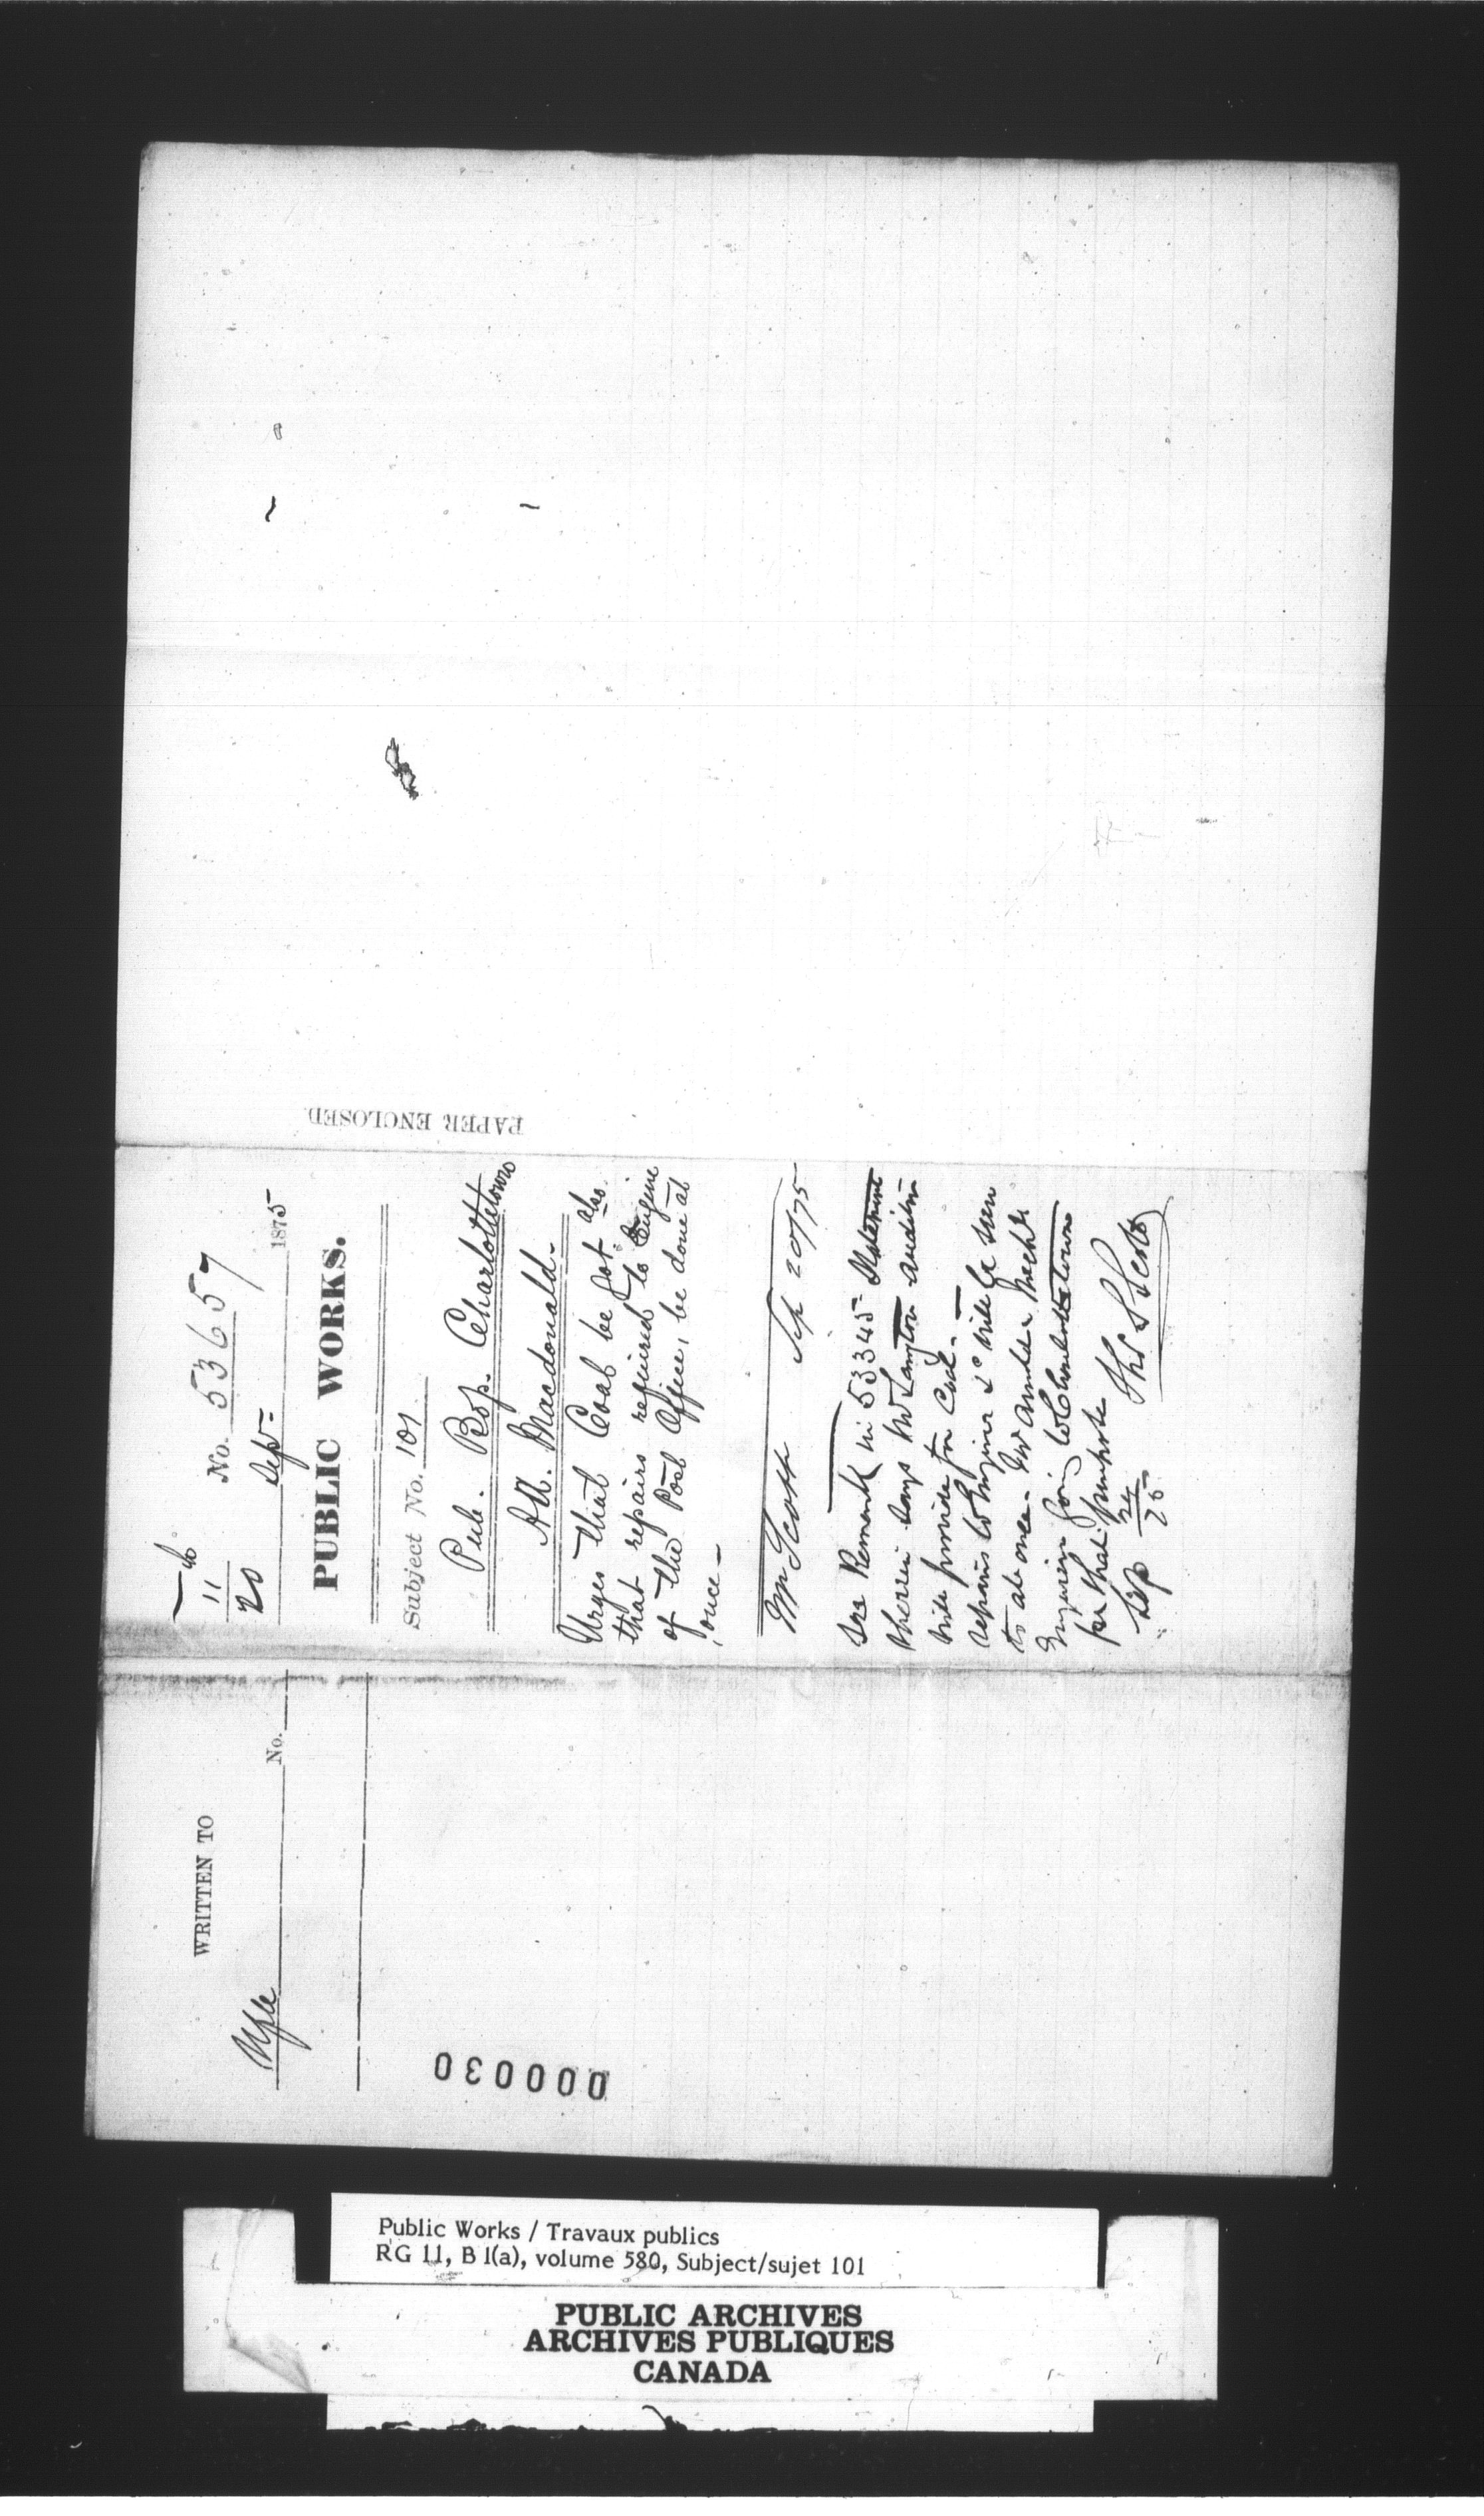 No. 53657
11
20 Sep- 1875
PUBLIC WORKS.
Subject No. 101
Pub. Bdgs. Charlottetown
A.A. Macdonald.
Urges that Coal be got also
that repairs required to Engine
of the Post Office, be done at
once-
Mr Scott Sep 20/75
See Remark in 53345 Statement
therein says Mr Langton auditor
will provide for Coal.-
repairs to Engine &c will be seen
to at once. Mr Arnoldi Mechl
Engineer going to Charlottetown
for that purpose
Sep 24/75 Thos S Scott
PAPER ENCLOSED
WRITTEN TO
No.
000030
Public Works / Travaux publics
RG 11, B 1(a), volume 580, Subject/sujet 101
PUBLIC ARCHIVES
ARCHIVES PUBLIQUES
CANADA